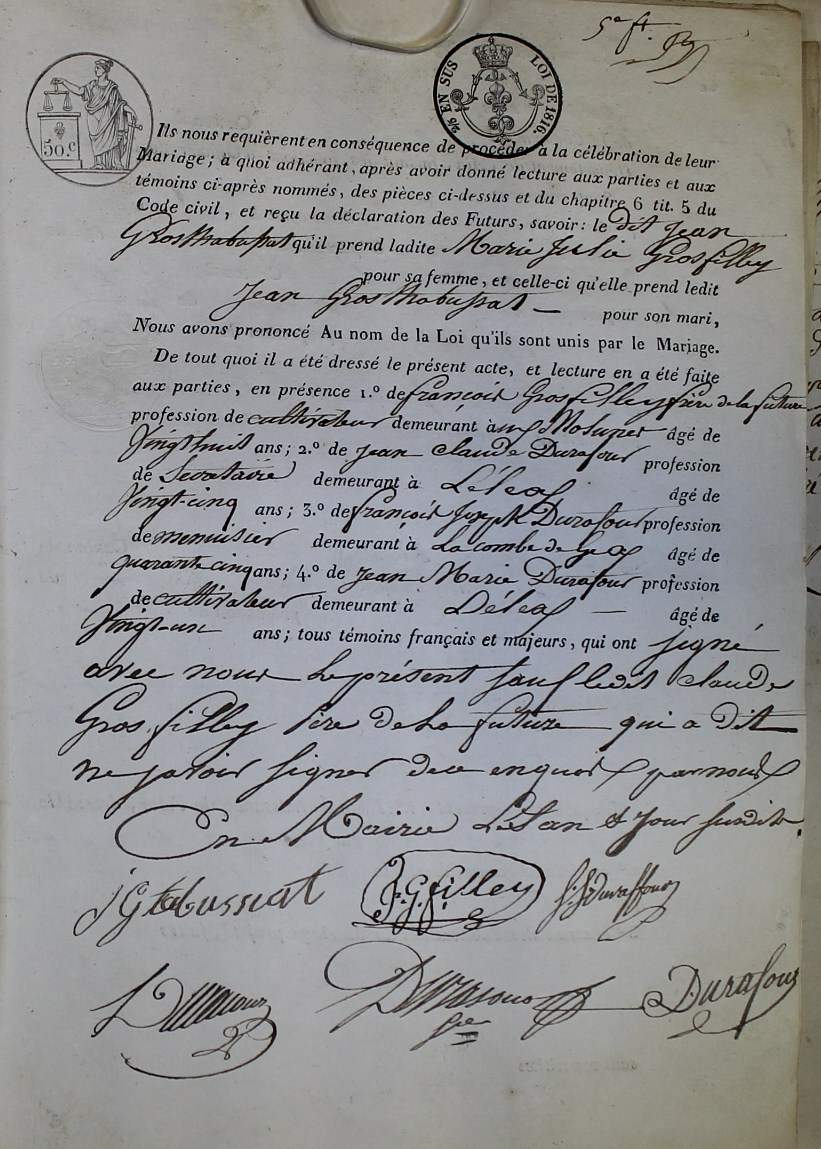 5e ft.
50.c
2/5 EN SUS LOI DE 1816.
Ils nous requièrent en conséquence de procéder à la célébration de leur
Mariage; à quoi adhérant, après avoir donné lecture aux parties et aux
témoins ci-après nommés, des pièces ci-dessus et du chapitre 6 tit. 5 du
Code civil, et reçu la déclaration des Futurs, savoir: le dit Jean
Grosthabussat qu'il prend ladite Marie Julie Grosfilley
pour sa femme, et celle-ci qu'elle prend ledit
Jean Grosthabussat — pour son mari,
Nous avons prononcé Au nom de la Loi qu'ils sont unis par le Mariage.
De tout quoi il a été dressé le présent acte, et lecture en a été faite
aux parties, en présence 1.º de françois Grosfilley frère de la future
profession de cultivateur demeurant à aux Molunes âgé de
Vingthuit ans; 2.º de Jean Claude Durafour profession
de Secretaire demeurant à Lélex âgé de
Vingt-cinq ans; 3.º de françois Joseph Durafour profession
de menuisier demeurant à La combe de Gex âgé de
quarante cinq ans; 4.º de Jean Marie Durafour profession
de cultivateur demeurant à Lélex — âgé de
Vingt-un ans; tous témoins français et majeurs, qui ont signé
avec nous le présent sauf ledit Claude
Gros-filley père de la future qui a dit
ne savoir signer de ce enquis par nous
En Mairie Les an & jour susdits.
J Gtabussiat F.G.filley f.J. Duraffour
Durafour Durafour Durafour